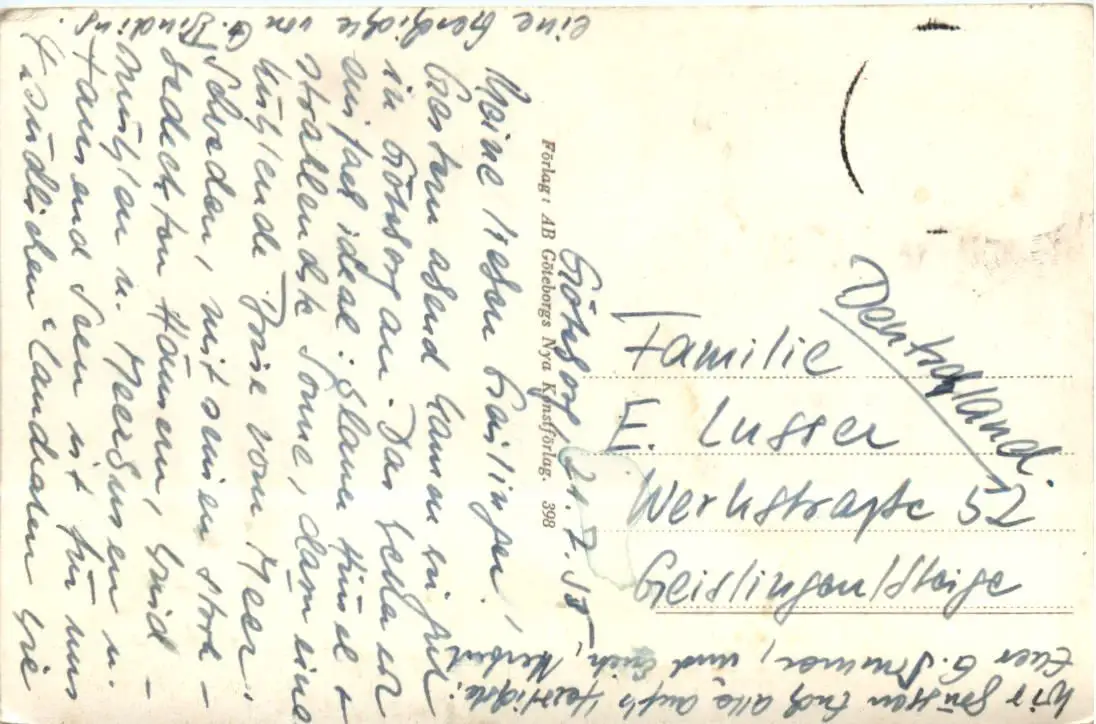 Göteborg, 21.7.55
Meine lieben Geislinger,
Gestern abend kamen wir gut
in Göteborg an. Das Wetter ist
einfach ideal: blauer Himmel +
strahlendste Sonne, dazu eine
kühlende Brise vom Meer.
Schweden, mit seinen stroh-
bedeckten Häusern, Wind-
mühlen u. Meerbusen u.
tausend Seen ist für uns
wie
eine Geschichte von G. Binding.
Wir grüßen Euch alle aufs Herzlichste:
Euer G. und Herbert
Förlag: AB Göteborgs Nya Konstförlag. 398
Deutschland.
Familie
E. Lusser
Werkstraße 52
Geislingen/Steige